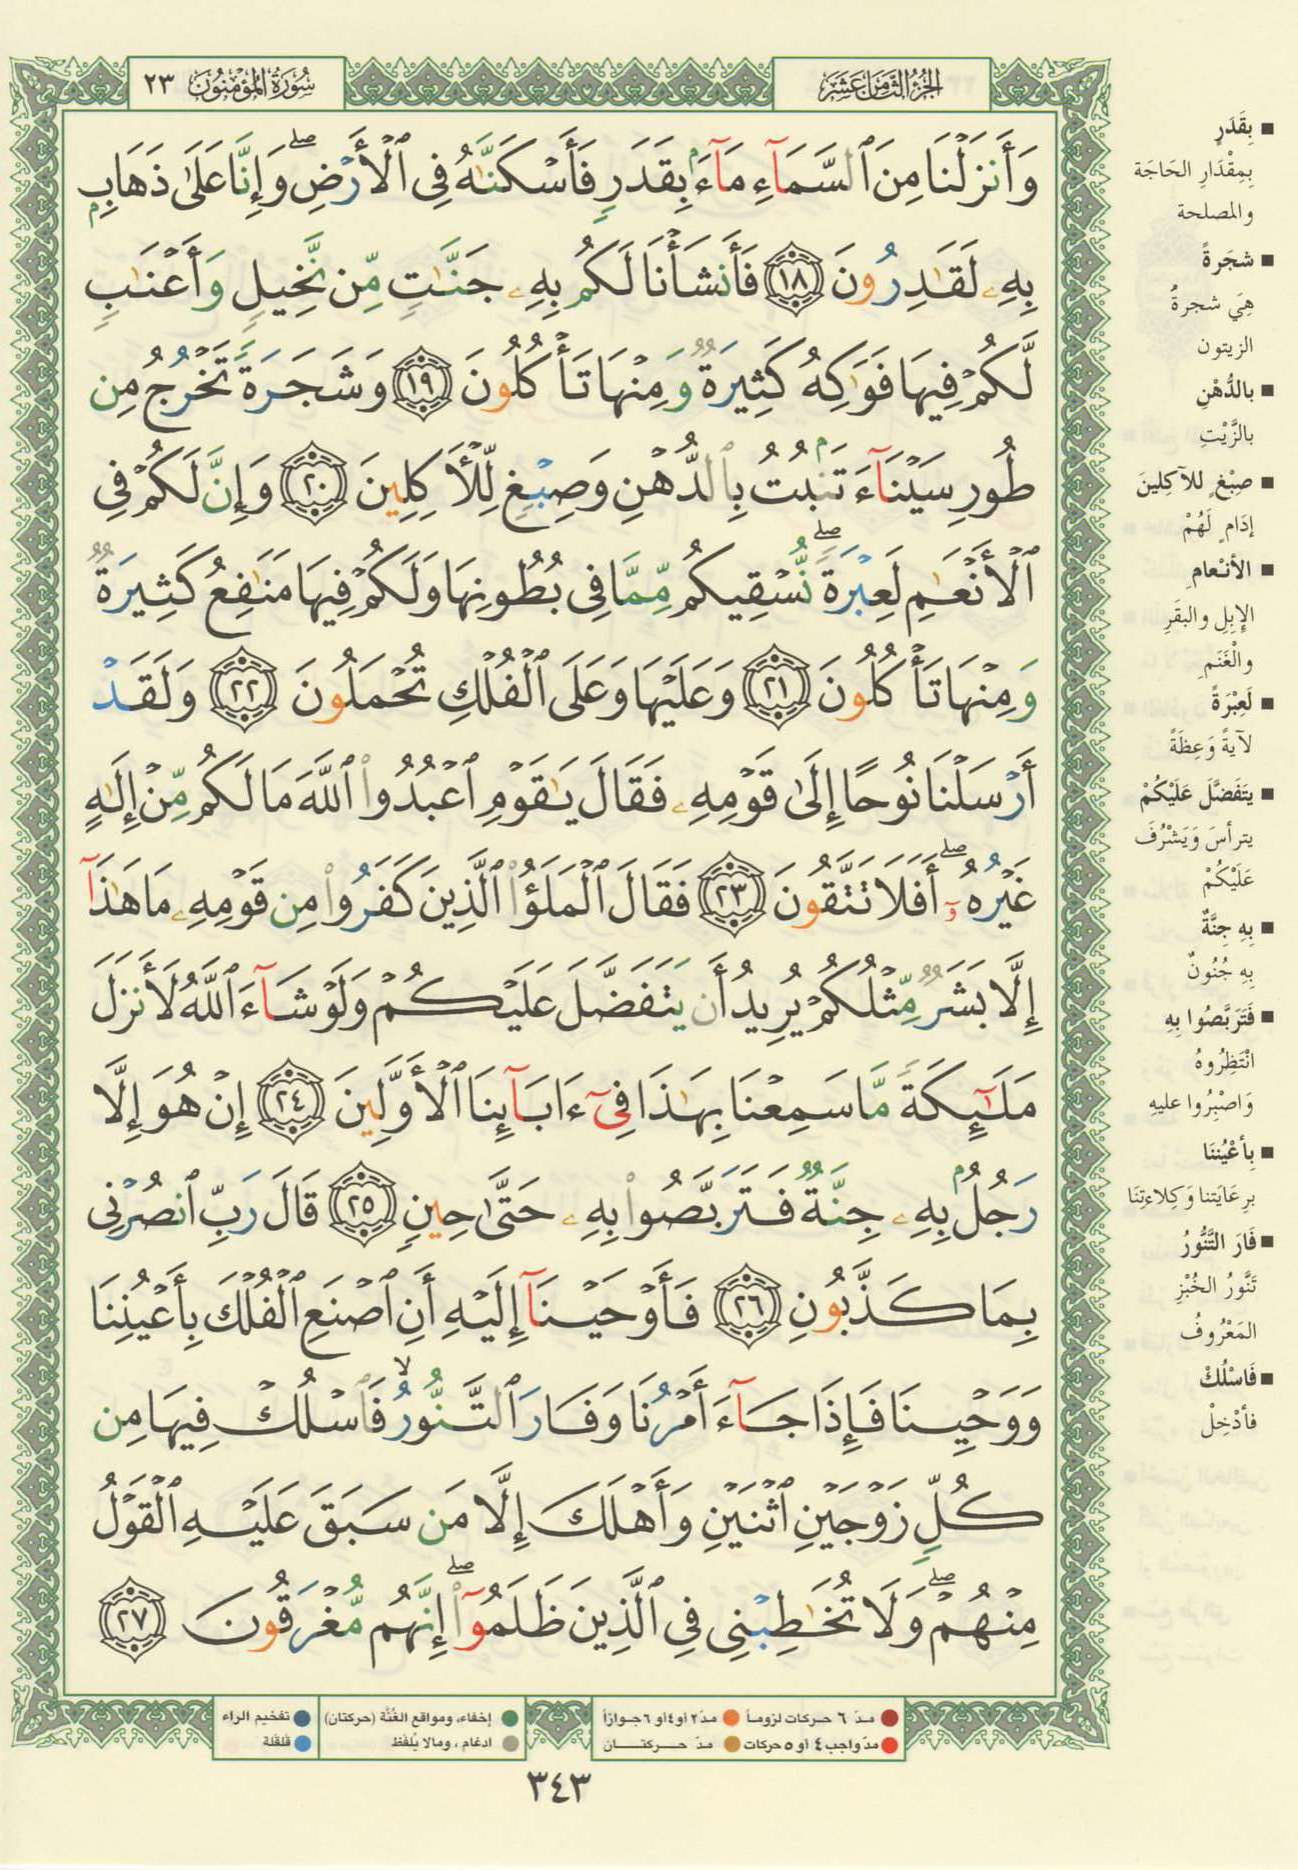 الجزء الثامن عشر
سورة المؤمنون ٢٣
وَأَنزَلْنَا مِنَ ٱلسَّمَآءِ مَآءًۢ بِقَدَرٍ فَأَسْكَنَّٰهُ فِى ٱلْأَرْضِ ۖ وَإِنَّا عَلَىٰ ذَهَابٍۭ
بِهِۦ لَقَٰدِرُونَ ١٨ فَأَنشَأْنَا لَكُم بِهِۦ جَنَّٰتٍ مِّن نَّخِيلٍ وَأَعْنَٰبٍ
لَّكُمْ فِيهَا فَوَٰكِهُ كَثِيرَةٌ وَمِنْهَا تَأْكُلُونَ ١٩ وَشَجَرَةً تَخْرُجُ مِن
طُورِ سَيْنَآءَ تَنۢبُتُ بِٱلدُّهْنِ وَصِبْغٍ لِّلْءَاكِلِينَ ٢٠ وَإِنَّ لَكُمْ فِى
ٱلْأَنْعَٰمِ لَعِبْرَةً ۖ نُّسْقِيكُم مِّمَّا فِى بُطُونِهَا وَلَكُمْ فِيهَا مَنَٰفِعُ كَثِيرَةٌ
وَمِنْهَا تَأْكُلُونَ ٢١ وَعَلَيْهَا وَعَلَى ٱلْفُلْكِ تُحْمَلُونَ ٢٢ وَلَقَدْ
أَرْسَلْنَا نُوحًا إِلَىٰ قَوْمِهِۦ فَقَالَ يَٰقَوْمِ ٱعْبُدُوا۟ ٱللَّهَ مَا لَكُم مِّنْ إِلَٰهٍ
غَيْرُهُۥٓ ۖ أَفَلَا تَتَّقُونَ ٢٣ فَقَالَ ٱلْمَلَؤُا۟ ٱلَّذِينَ كَفَرُوا۟ مِن قَوْمِهِۦ مَا هَٰذَآ
إِلَّا بَشَرٌ مِّثْلُكُمْ يُرِيدُ أَن يَتَفَضَّلَ عَلَيْكُمْ وَلَوْ شَآءَ ٱللَّهُ لَأَنزَلَ
مَلَٰٓئِكَةً مَّا سَمِعْنَا بِهَٰذَا فِىٓ ءَابَآئِنَا ٱلْأَوَّلِينَ ٢٤ إِنْ هُوَ إِلَّا
رَجُلٌۢ بِهِۦ جِنَّةٌ فَتَرَبَّصُوا۟ بِهِۦ حَتَّىٰ حِينٍ ٢٥ قَالَ رَبِّ ٱنصُرْنِى
بِمَا كَذَّبُونِ ٢٦ فَأَوْحَيْنَآ إِلَيْهِ أَنِ ٱصْنَعِ ٱلْفُلْكَ بِأَعْيُنِنَا
وَوَحْيِنَا فَإِذَا جَآءَ أَمْرُنَا وَفَارَ ٱلتَّنُّورُ ۙ فَٱسْلُكْ فِيهَا مِن
كُلٍّ زَوْجَيْنِ ٱثْنَيْنِ وَأَهْلَكَ إِلَّا مَن سَبَقَ عَلَيْهِ ٱلْقَوْلُ
مِنْهُمْ ۖ وَلَا تُخَٰطِبْنِى فِى ٱلَّذِينَ ظَلَمُوٓا۟ ۖ إِنَّهُم مُّغْرَقُونَ ٢٧
■ بِقَدَرٍ
بِمِقْدَارِ الحَاجَة
والمصلحة
■ شجَرةً
هِيَ شجرةُ
الزيتون
■ بالدُّهْنِ
بالزَّيْتِ
■ صِبْغٍ للآكِلينَ
إدَامٍ لَهُمْ
■ الأنْعامِ
الإِبِلِ والبقَرِ
والْغَنَمِ
■ لَعِبْرَةً
لآيةً وَعِظَةً
■ يتَفَضَّلَ عَلَيْكُمْ
يترأسَ وَيَشْرُفَ
عَلَيْكُمْ
■ بِهِ جِنَّةٌ
بِهِ جُنُونٌ
■ فَتَرَبَّصُوا بِهِ
انْتَظِرُوهُ
وَاصْبِرُوا عليهِ
■ بِأعْيُننَا
برِعَايَتنا وَكِلاءتِنَا
■ فَارَ التَّنُّورُ
تَنُّورُ الخُبْزِ
المَعْرُوفُ
■ فَاسْلُكْ
فأدْخِلْ
مدّ ٦ حركات لزوماً
مدّ ٢ أو ٤ أو ٦ جوازاً
إخفاء، ومواقع الغُنَّة (حركتان)
تفخيم الراء
مدّ واجب ٤ أو ٥ حركات
مدّ حركتان
ادغام ، ومالا يُلفظ
قلقلة
٣٤٣